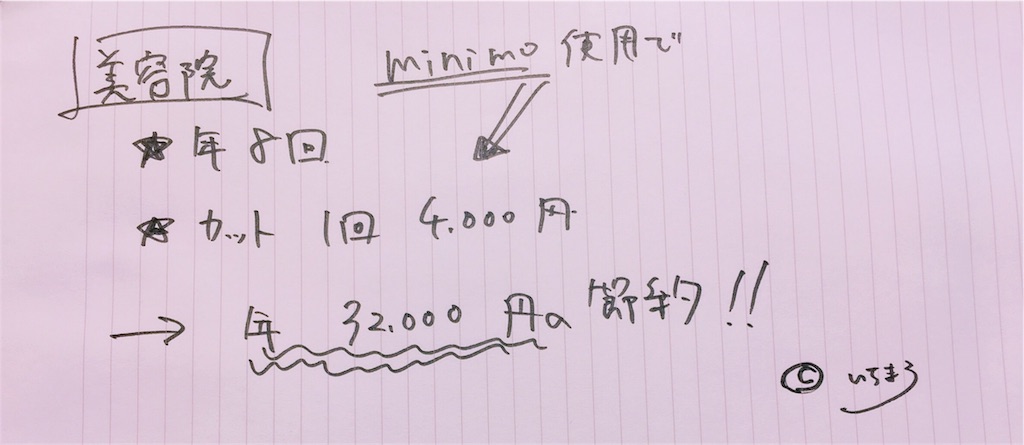 美容院
minimo 使用で
★ 年 8回
★ カット 1回 4.000円
→ 年 32.000 円の 節約!!
© いちまろ